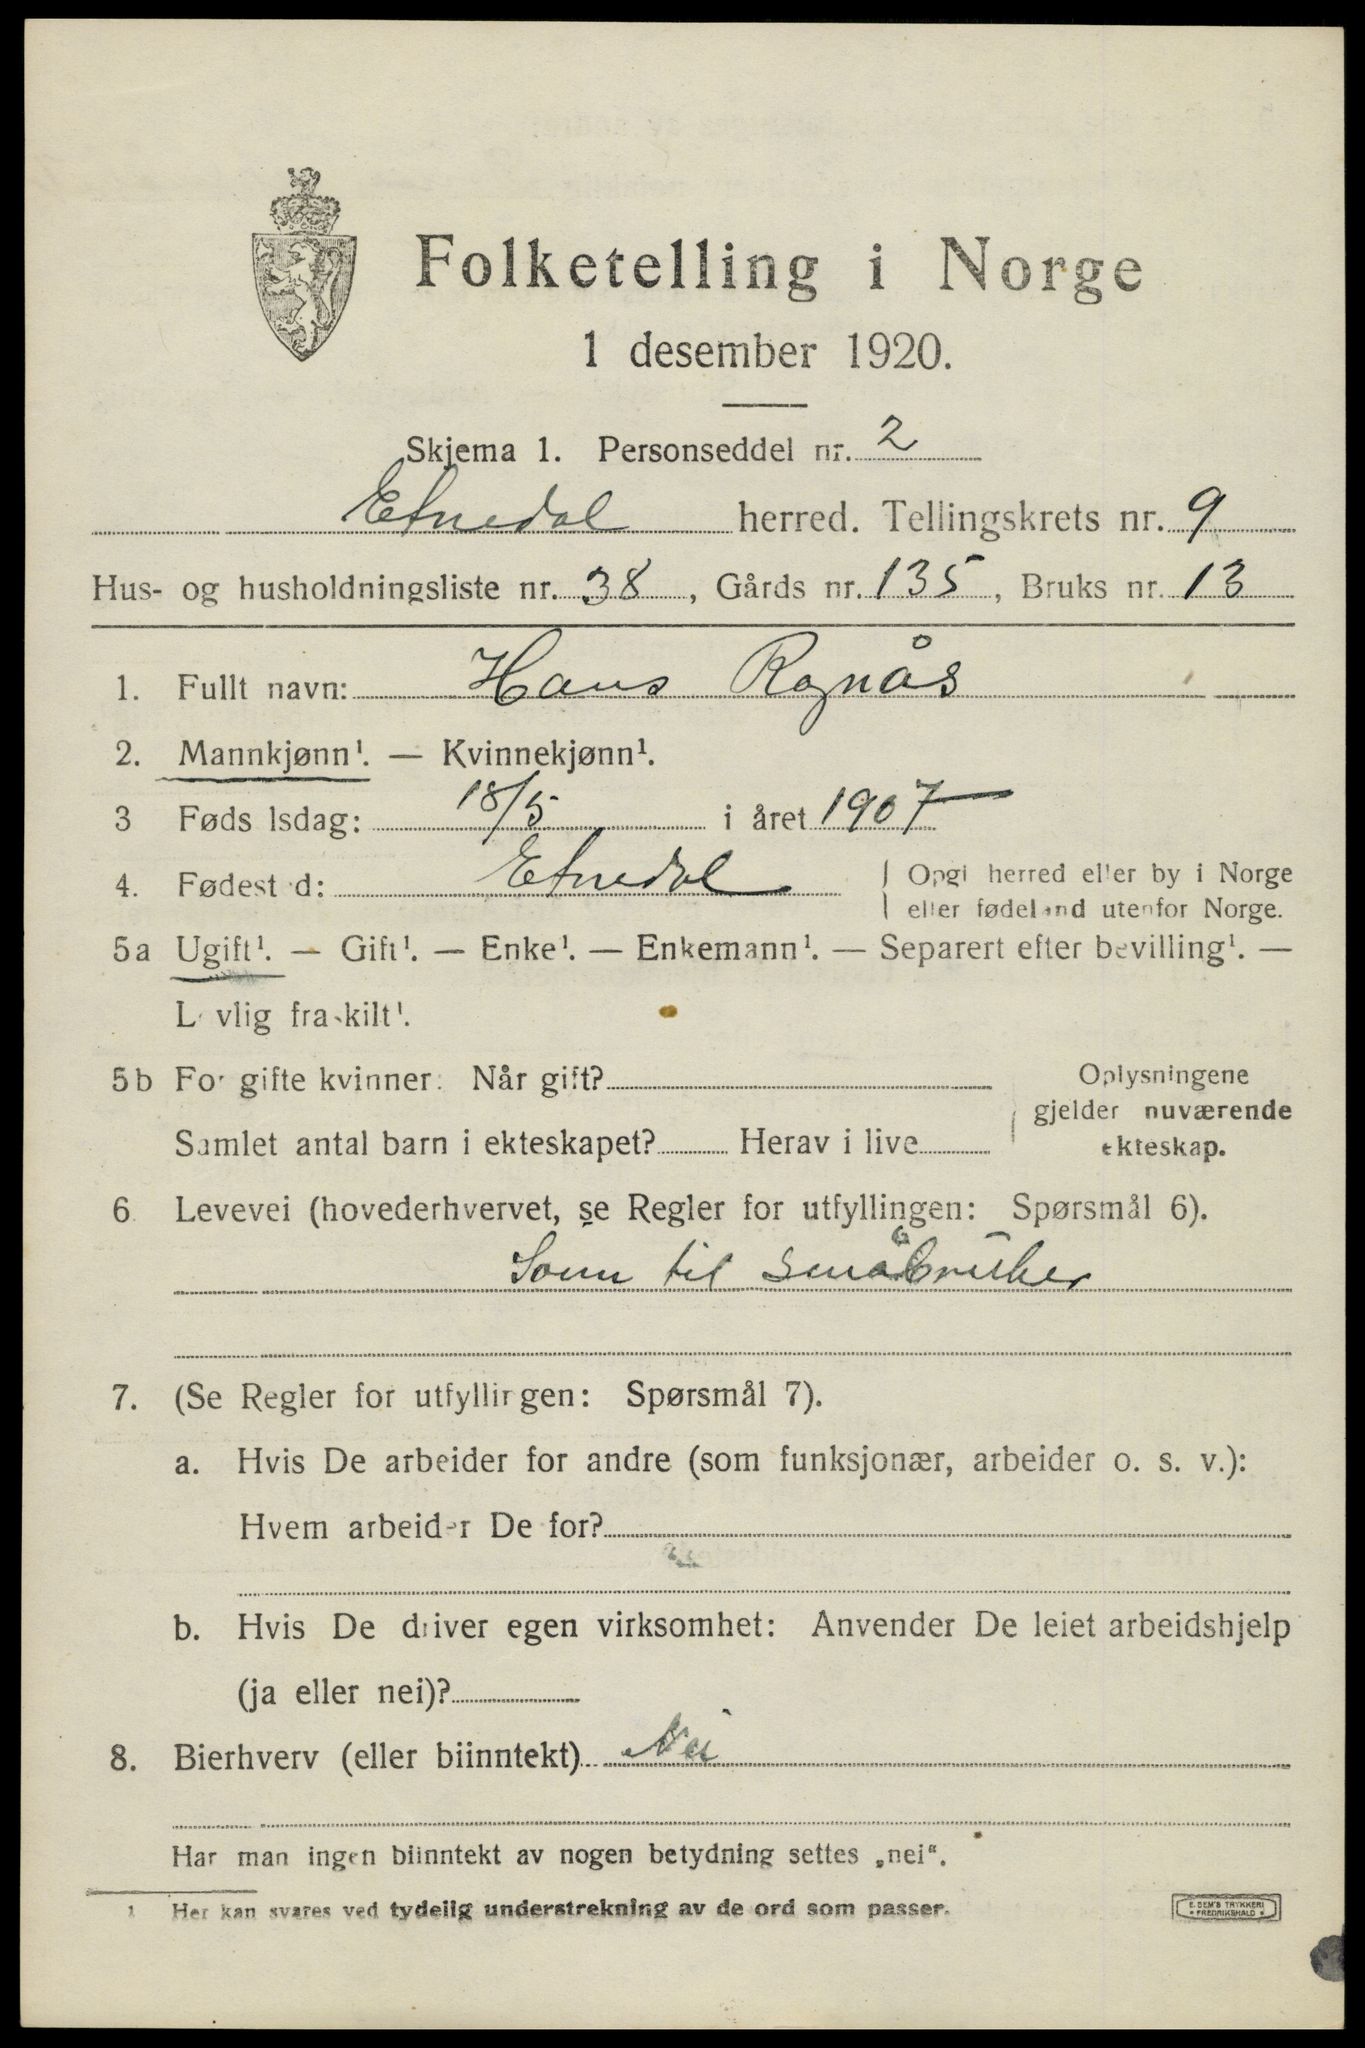 Folketelling i Norge
1 desember 1920.
Skjema 1. Personseddel nr. 2
Etnedal herred. Tellingskrets nr. 9
Hus- og husholdningsliste nr. 38, Gårds nr. 135, Bruks nr. 13
1. Fullt navn: Hans Rognås
2. Mannkjønn¹. — Kvinnekjønn¹.
3 Føds lsdag: 18/5 i året 1907
4. Fødest d: Etnedal
Opgi herred eller by i Norge
eller fødeland utenfor Norge.
5a Ugift¹. — Gift¹. — Enke¹. — Enkemann¹. — Separert efter bevilling¹. —
Lovlig fraskilt¹.
5b For gifte kvinner: Når gift?
Samlet antal barn i ekteskapet? Herav i live
Oplysningene
gjelder nuværende
ekteskap.
6. Levevei (hovederhvervet, se Regler for utfyllingen: Spørsmål 6).
Sønn til småbruker
7. (Se Regler for utfyllingen: Spørsmål 7).
a. Hvis De arbeider for andre (som funksjonær, arbeider o. s. v.):
Hvem arbeider De for?
b. Hvis De driver egen virksomhet: Anvender De leiet arbeidshjelp
(ja eller nei)?
8. Bierhverv (eller biinntekt) Nei
Har man ingen biinntekt av nogen betydning settes „nei“.
1 Her kan svares ved tydelig understrekning av de ord som passer.
E. SEM'S TRYKKERI
* FREDRIKSHALD *